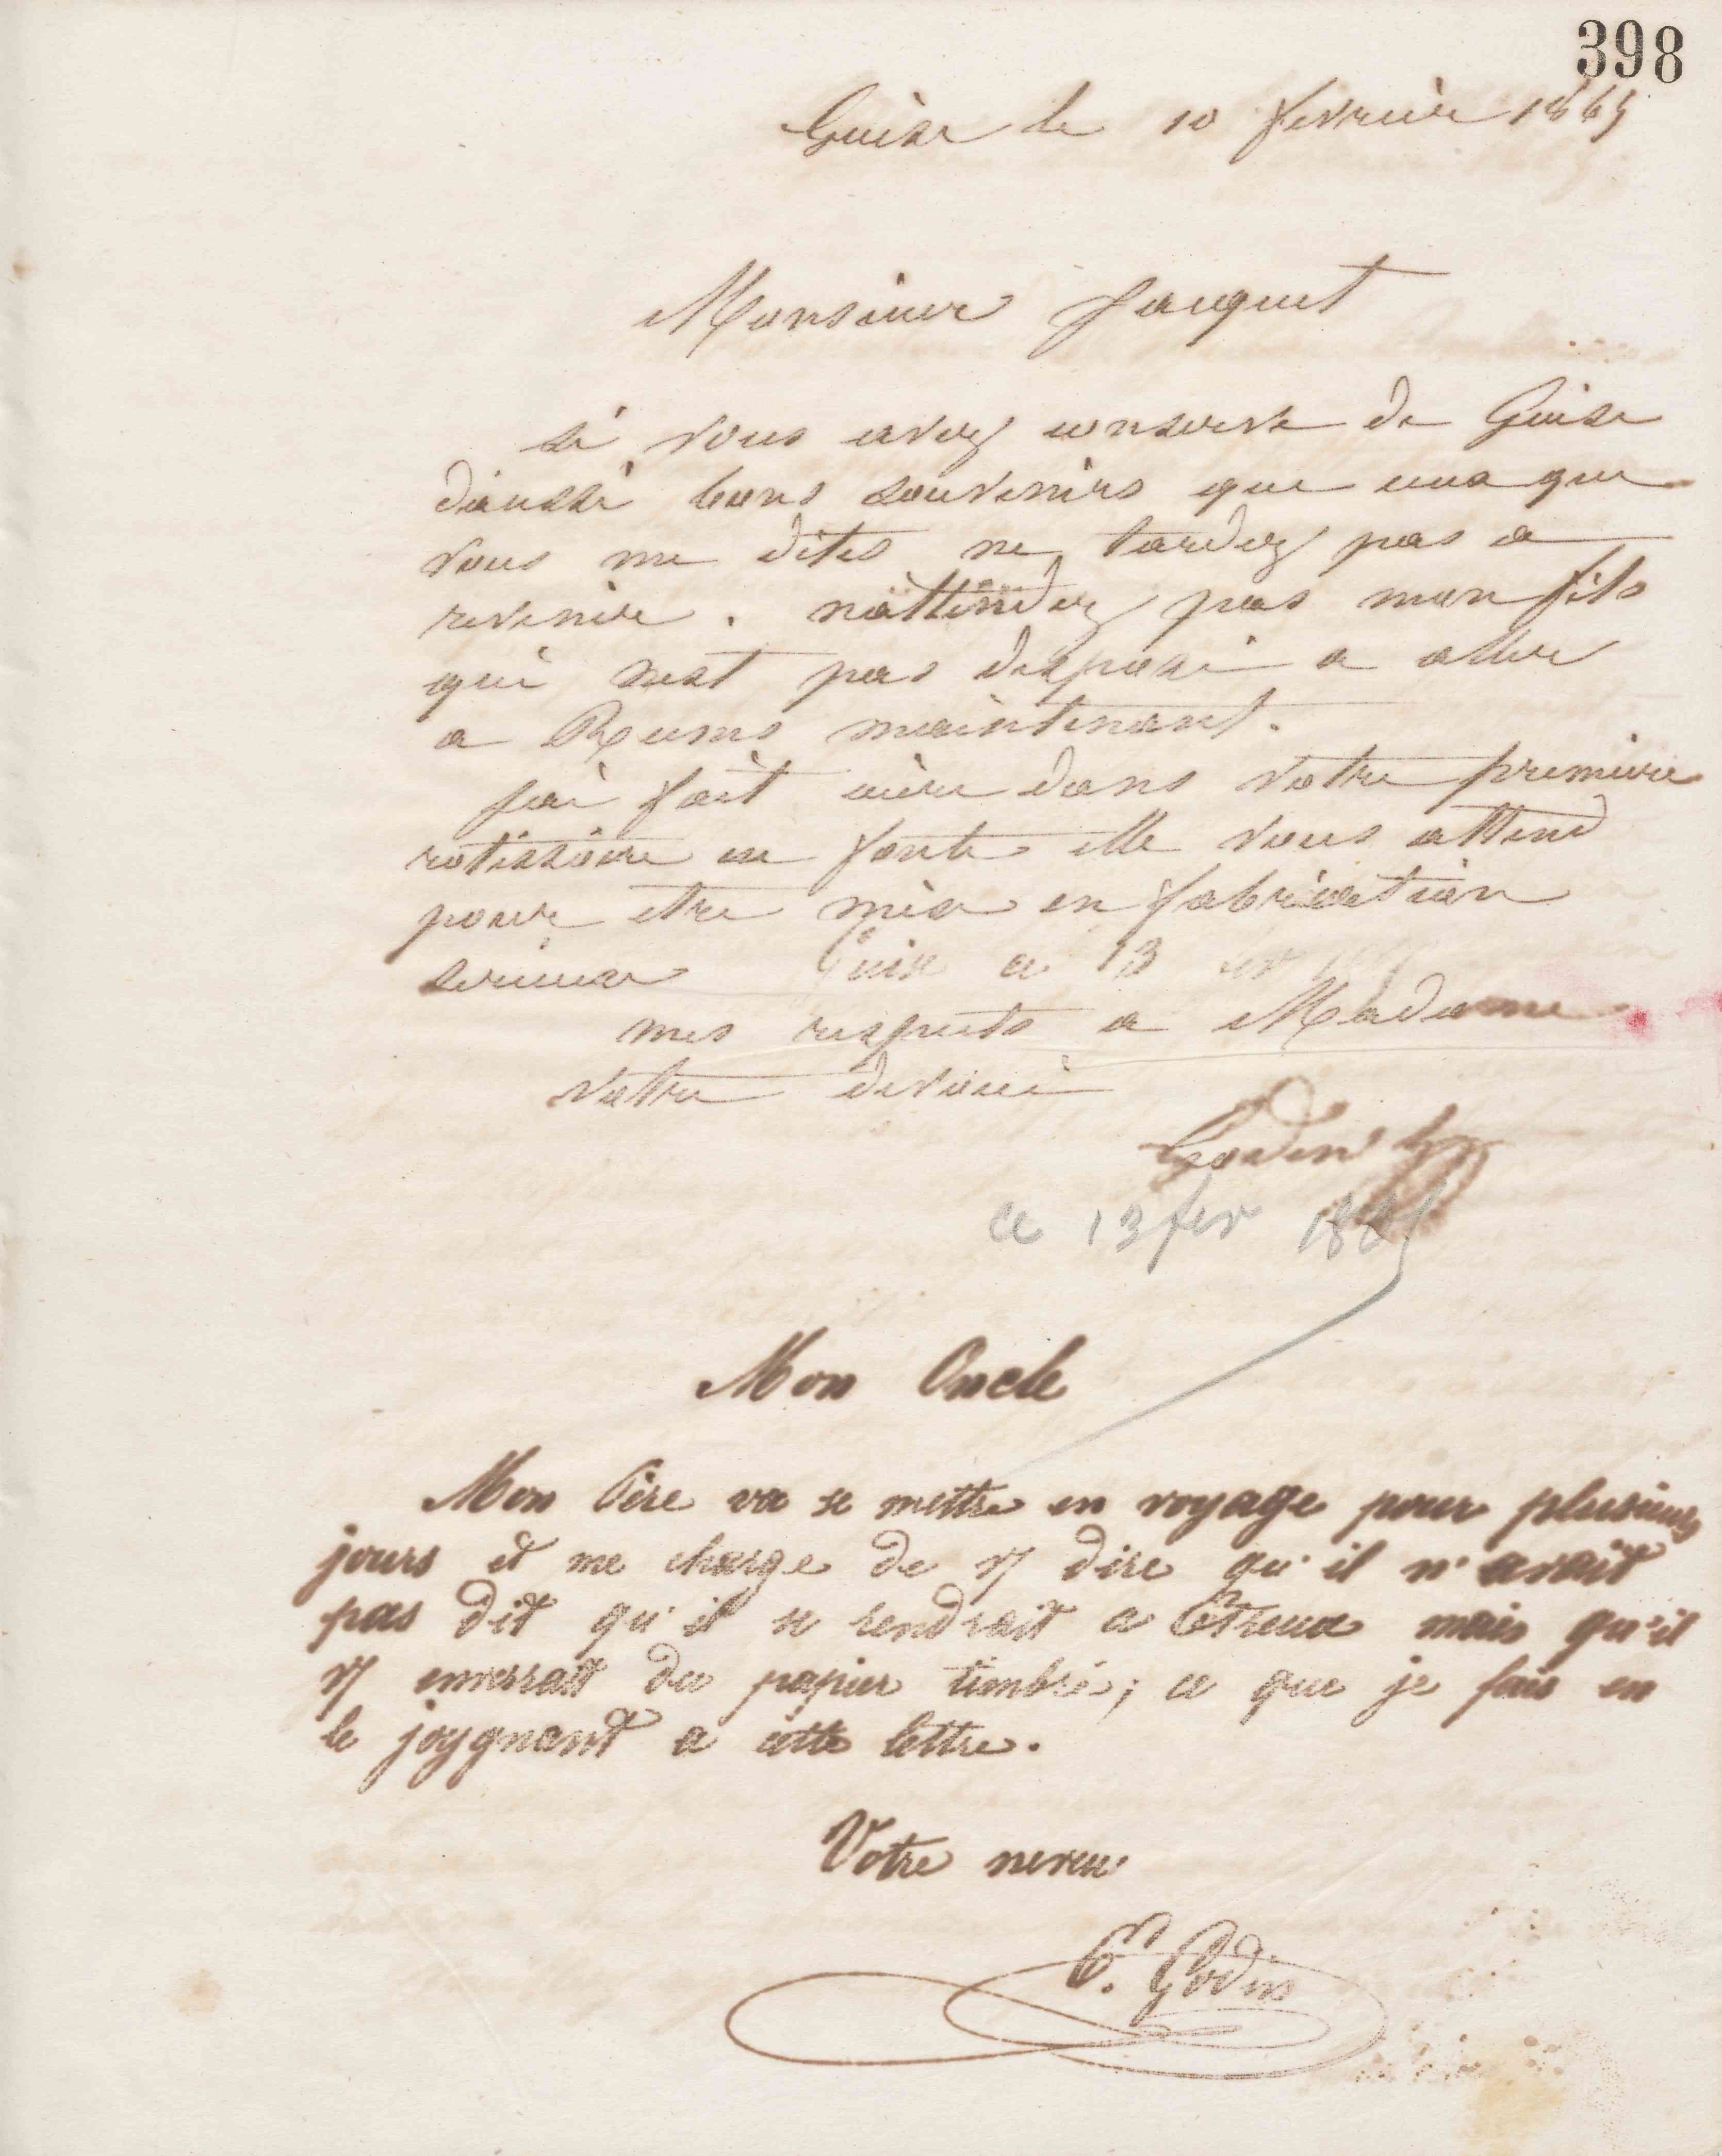 398
Guise le 10 fevrier 1865
Monsieur Jacquet
si vous avez conserve de Guise
d'aussi bons souvenirs que ceux que
vous me dites ne tardez pas a
revenir. n'attendez pas mon fils
qui nest pas disposé a aller
a Reims maintenant.
j'ai fait cuire dans votre premiere
rotissoire en fonte elle vous attend
pour etre mise en fabrication
serieuse Guise ce 13
mes respects a Madame
votre devoué
Godin
ce 13 fev 1865
Mon Oncle
Mon Père va se mettre en voyage pour plusieurs
jours et me charge de v/ dire qu'il n'avait
pas dit qu'il se rendrait a Etreux mais qu'il
v/ enverrait du papier timbré; ce que je fais en
le joygnant a cette lettre.
Votre neveu
E. Godin